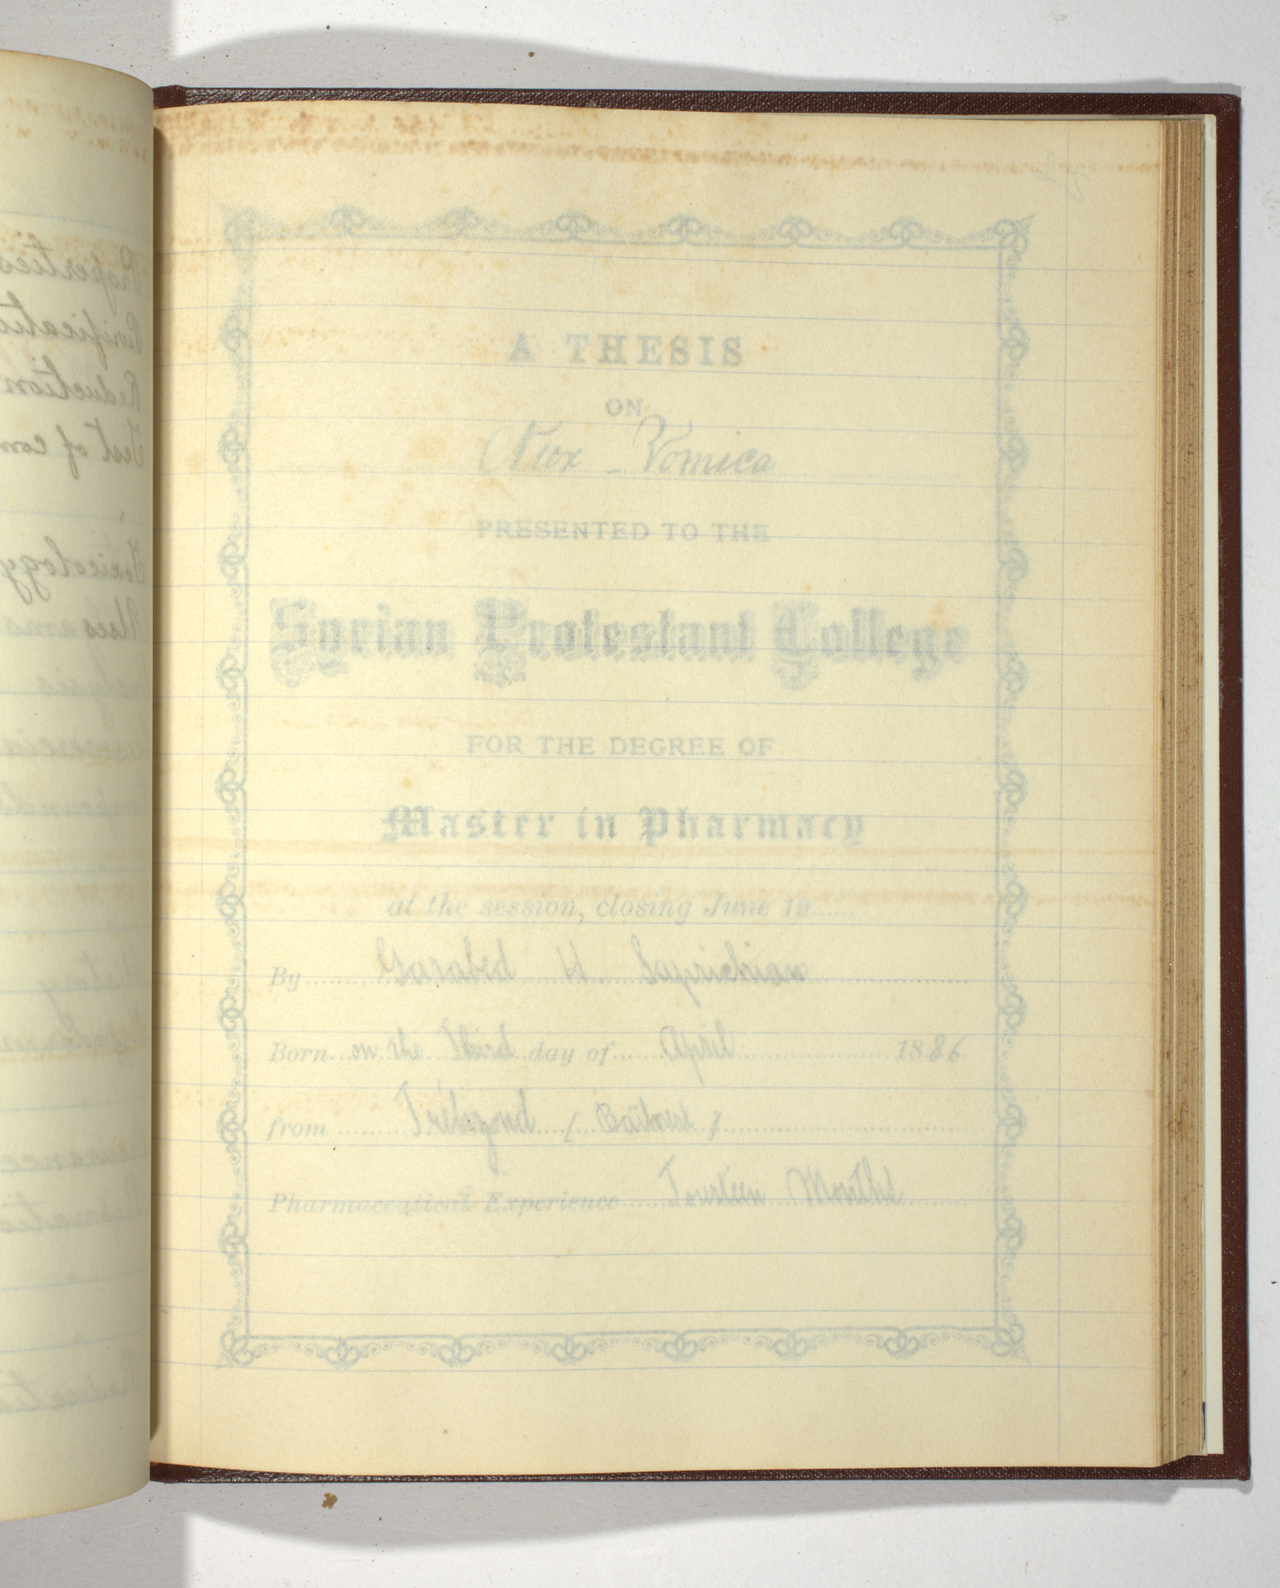 A THESIS
ON
Nux - Vomica
PRESENTED TO THE
Syrian Protestant College
FOR THE DEGREE OF
Master in Pharmacy
at the session, closing June 19
By Garabed H
Born on the Third day of April 1886
from Trebizond
Pharmaceutical Experience Fourteen Months